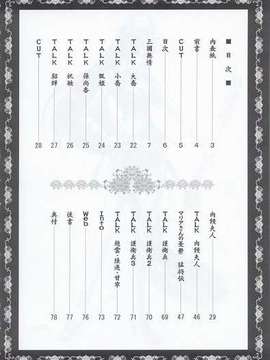 ■目次■
内表紙 3
前書 4
CUT 5
目次 6
三國無情 7
TALK 大喬 22
TALK 小喬 23
TALK 甄姫 24
TALK 孫尚香 25
TALK 祝融 26
TALK 貂蝉 27
CUT 28
夫人 29
TALK 夫人 46
マリアさんの 猛将伝 47
TALK 護衛兵 69
TALK 護衛兵2 70
TALK 護衛兵3 71
TALK 趙雲・陸遜・甘寧 72
Info 73
Web 76
後書 77
奥付 78